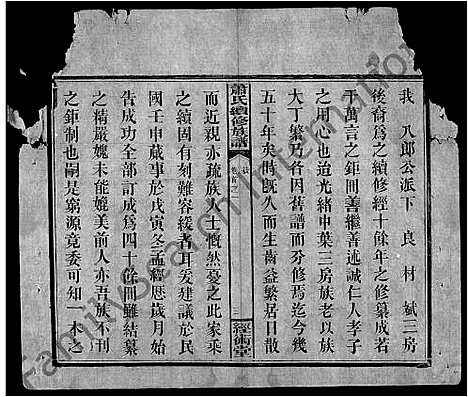 我 八郎公派下良材斌三房
後裔爲之續修經十餘年之修纂成若
干萬言之鉅間善繼善述誠仁人孝子
之用心也迨光緒中葉三房族老以族
大丁繁乃各因舊譜而分修焉迄今幾
五十年矣時旣久而生齒益繁居日散
蕭氏續修族譜
卷首之
三
經術堂
而近親亦疏族人士慨然憂之此家乘
之續固有刻難容緩者耳爰建議於民
國壬申蕆事於戊寅冬孟經歷歲月始
告成功全部定訂成爲四十餘間雖結纂
之精嚴媿未能媲美前人亦吾族不刊
之鉅制也嗣是窮源竟委可知一本之
FamilySearch International